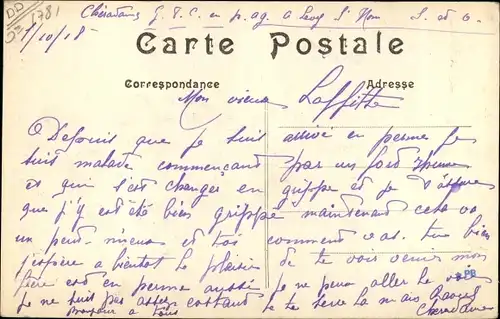 Cheradame G. T. C. en p. ag. a Levy St Nom S. et O.
1781
1/10/18
Carte Postale
Correspondance
Adresse
Mon vieux Laffitte
Depuis que je suis arrivé en perme je
suis malade commençant par un fort rhume
et qui s'est changer en grippe et je t'assure
que j'y est été bien grippé maintenant ceta va
un peut mieux et toi comment vas. tu bien
j'espère a bientot le plaisir de te voir venir mon
frère est en perme aussi je ne peux aller le voir
je ne suis pas assez costaud je te serre la main Raoul
Bonjour a tous
Cheradame